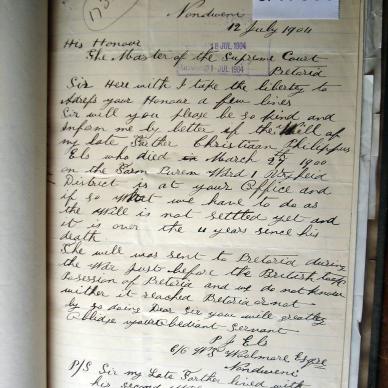 173
Nondweni
12 July 1904
18 JUL. 1904
JUL 1904
His Honour
The Master of the Supreme Court
Pretoria
Sir Here with I take the liberty to
adress your Honour a few lines
Sir will you please be so kind and
Inform me by letter if the Will of
my late Father Christiaan Philippus
Els who died on March 27th 1900
on the Farm Ward 1 Vryheid
District is at your Office and
if so what we have to do as
the Will is not settled yet and
it is over the 4 years since his
death
The will was sent to Pretoria during
the War just before the British took
Posession of Pretoria and we do not know
wither it reached Pretoria or not
by so doing Dear Sir you will greatly
Oblidge your obediant servant
P J Els
c/o W S Walmare Esqre
Nondweni
P/S Sir my Late Farther lived with
his second